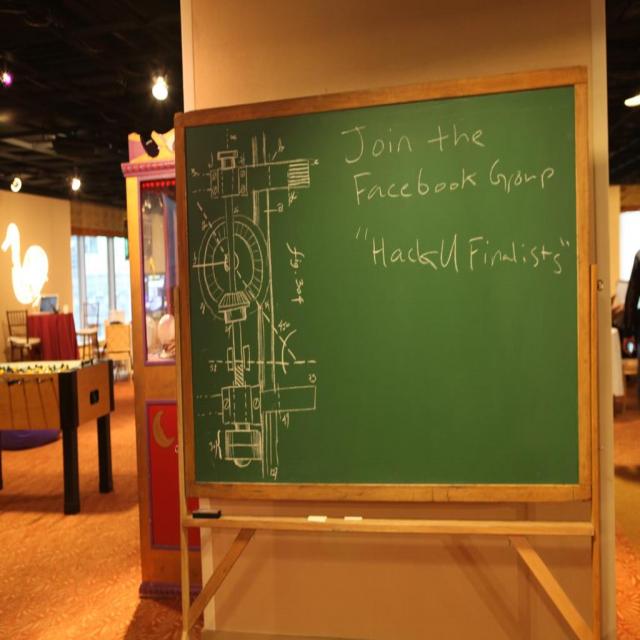 Join the
Facebook Group
"HackU Finalists"